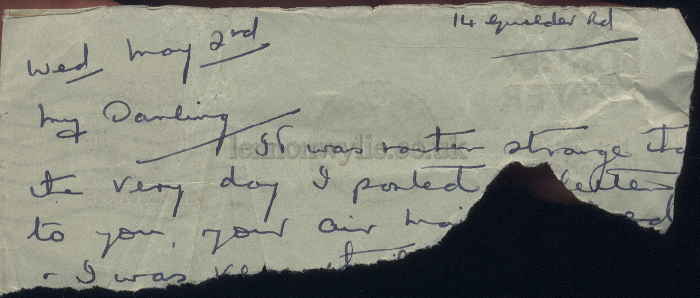 14 Guelder Rd
Wed May 2nd
My Darling
It was rather strange tha
the very day I posted letter
to you, your air mai ed
- I was ve
lennonwylie.co.uk